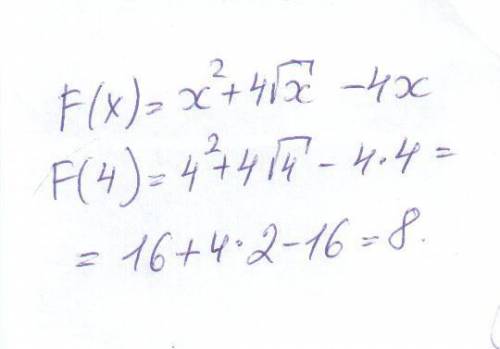 F(x) = x² + 4√x - 4x
F(4) = 4² + 4√4 - 4·4 =
= 16 + 4·2 - 16 = 8.